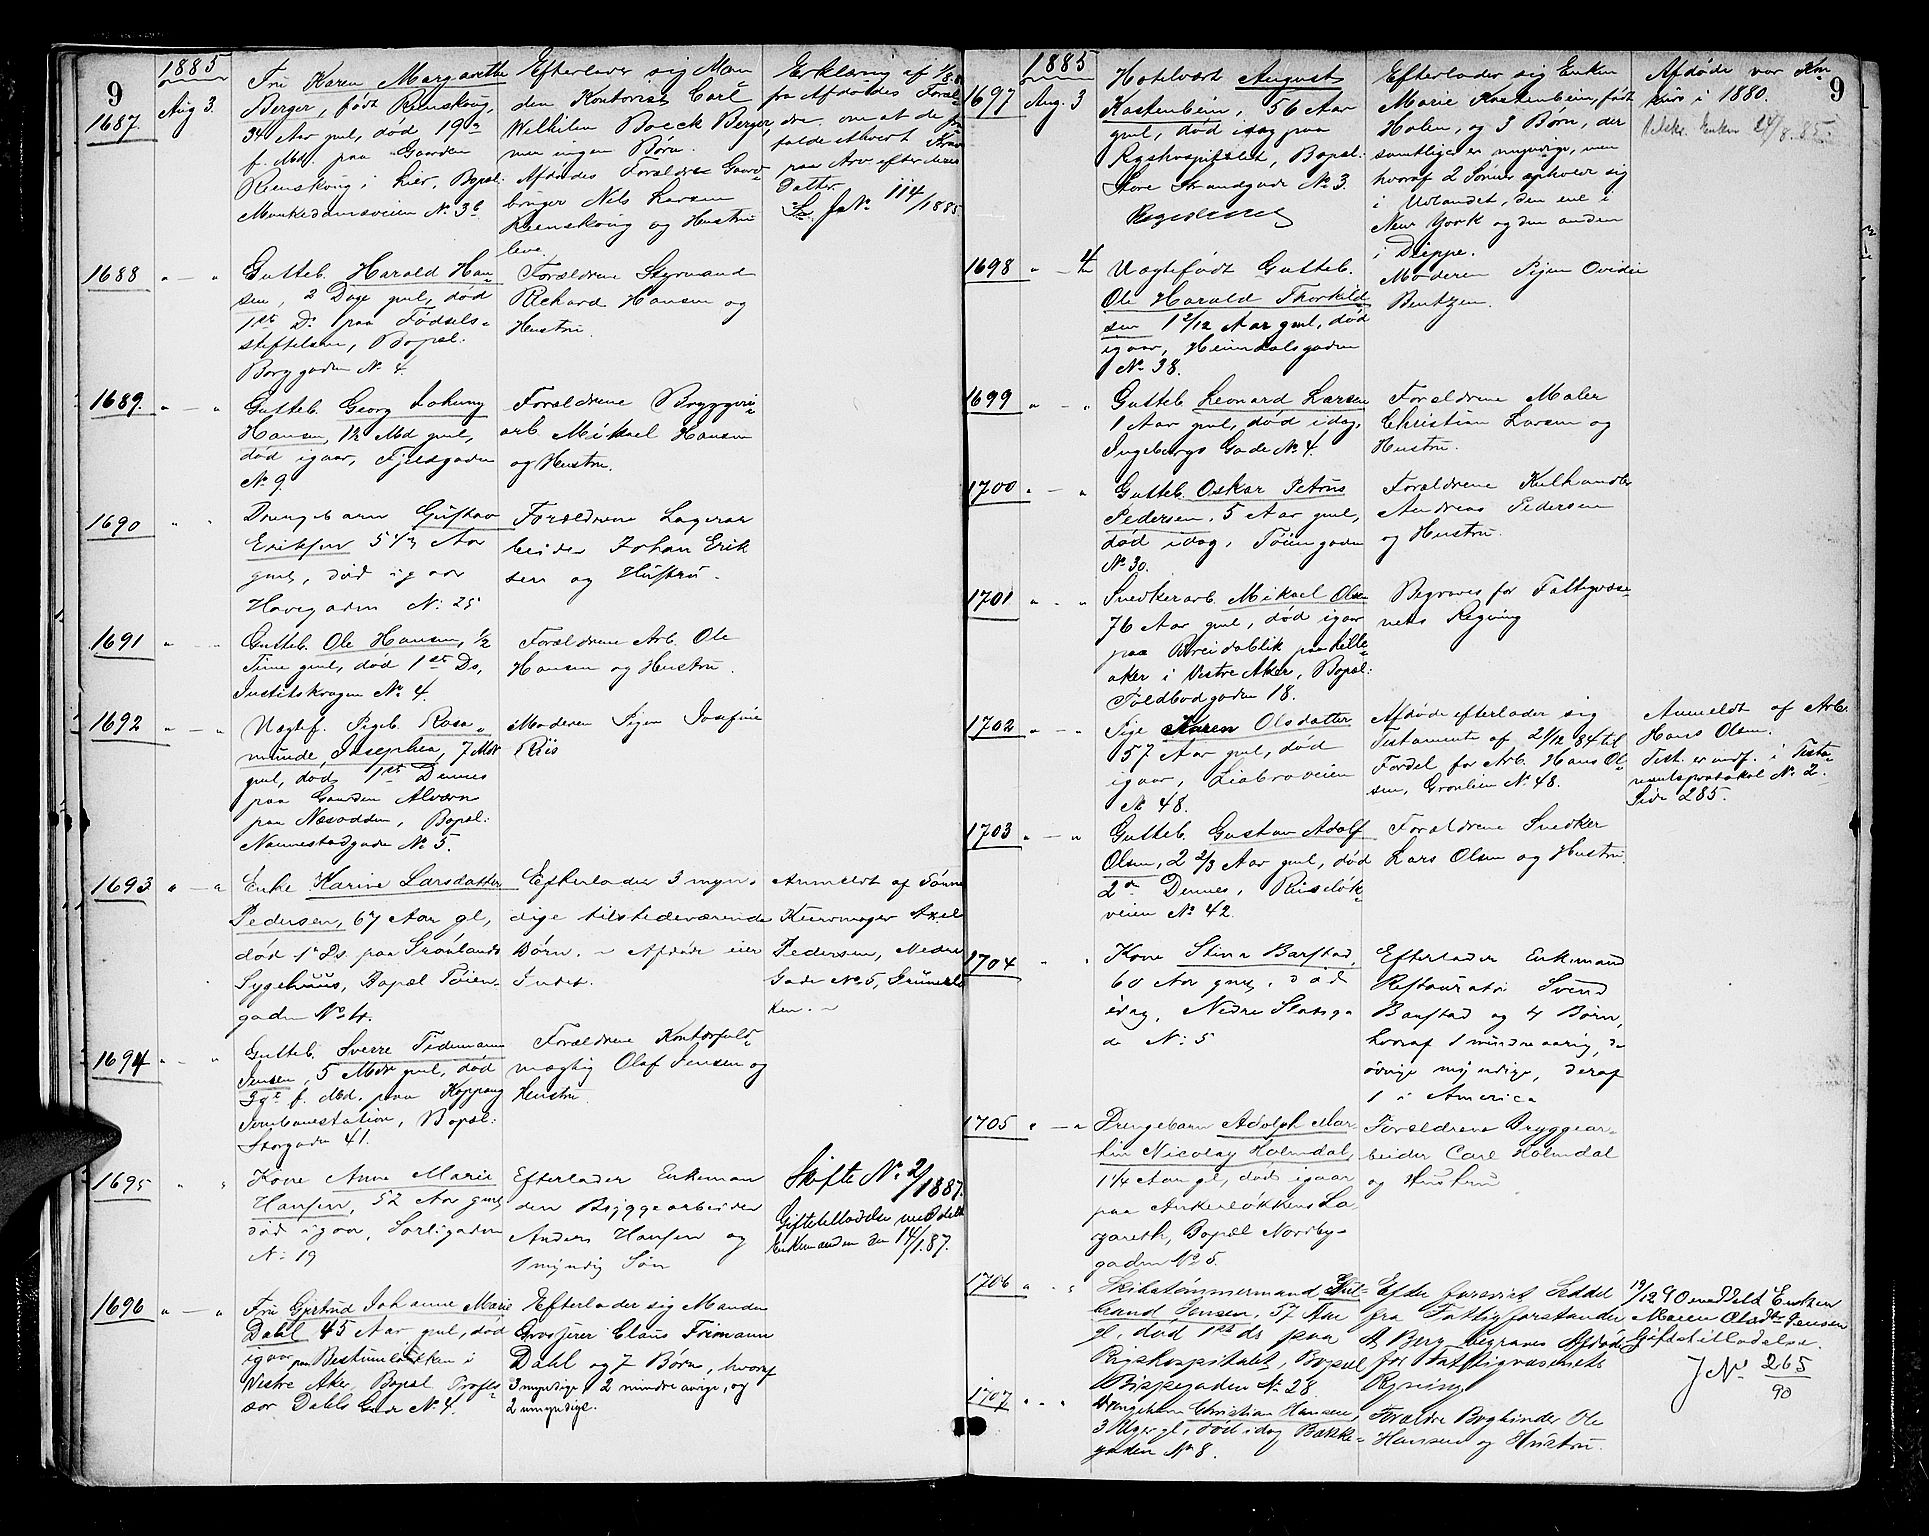 9
1885
1687.
Aug 3.
Fru Karen Margarethe
Berger, født Reenskoug,
34 Aar gml, død 19de
f. Md. paa Gaarden
Reenskoug i Lier, Bopæl:
Munkedamsveien No 3b
Efterlader sig Man
den Kontorist Carl
Wilhelm Boeck Berger,
men ingen Børn.
Afdødes Forældre Gaard-
bruger Nils Larsen
Reenskoug og Hustru
leve.
Erklæring af
fra Afdødes Foræl-
dre om at de fra
falde ethvert Krav
paa Arv efter deres
Datter
J No 114/1885
1688 " — "
Gutteb. Harald Han
sen, 2 Dage gml, død
1ste Ds paa Fødsels-
stiftelsen, Bopæl:
Borggaden No 4.
Forældrene Styrmand
Richard Hansen og
Hustru.
1689. " — "
Gutteb. Georg Johnny
Hansen, 1½ Md gml,
død igaar, Fjeldgaden
No 9.
Forældrene Bryggeri-
arb. Mikael Hansen
og Hustru.
1690 " "
Drengebarn Gustav
Eriksen 5 1/2 Aar
gml, død igaar
Havegaden No 25
Forældrene Lagerar
beider Johan Erik
sen og Hustru.
1691 " — "
Gutteb. Ole Hansen, ½
Time gml, død 1ste Ds,
No 4.
Forældrene Arb. Ole
Hansen og Hustru.
1692 " — "
Uægtf. Pigeb. Rosa-
munde, Josephea, 7 Mdr
gml, død 1ste Dennes
paa Gaarden Alværn
paa Næsodden, Bopæl:
Nannestadgade No 5.
Moderen Pigen Josefine
Riis
1693 " — "
Enke Karine Larsdatter
Pedersen, 67 Aar gl,
død 1ste Ds. paa Grønlands
Sygehuus, Bopæl Tøien-
gaden No 4.
Efterlader 3 myn-
dige tilstedeværende
Børn. – Afdøde eier
Intet.
Anmeldt af Sønnen
Kurvmager Axel
Pedersen, Nedre
Gade No 5, Grünerlø
ken. –
1694 " — "
Gutteb. Sverre Tidemann
Jensen, 5 Mdr gml, død
f. Md. paa Koppang
Jernbanestation, Bopæl:
Storgaden 41.
Forældrene Kontorfuld-
mægtig Olaf Jensen og
Hustru.
1695 " "
Kone Anne Marie
Hansen, 52 Aar gml,
død igaar, Sorligaden
No 19
Efterlader Enkeman
den Bryggearbeider
Anders Hansen og
1 myndig Søn
Skifte No 2/1887.
Giftetilladelse meddelt
Enkemanden den 14/1.87.
1696 " — "
Fru Gjertrud Johanne Marie
Dahl 45 Aar gml, død
igaar paa Bestumløkken i
Vestre Aker, Bopæl Profes-
sor Dahls Gade No 4.
Efterlader sig Manden
Grosserer Claus Firmann
Dahl og 7 Børn, hvoraf
3 myndige, 2 mindreaarige, og
2 umyndige.
9
1885
1697
Aug. 3
Hotelvært August
Kastenbein, 56 Aar
gml, død idag paa
Rigshospitalet, Bopæl:
Store Strandgade No 3.
Efterlader sig Enken
Marie Kastenbein, født
Holen, og 3 Børn, der
samtlige er myndige, men
hvoraf 2 Sønner opholder sig
i Udlandet, den ene i
New York og den anden
i Dieppe.
Afdøde var Kon
kurs i 1880.
Enken 24/8.85.
1698 " — 4
Uægtefødt Gutteb.
Ole Harald Thorkild
sen 1 2/12 Aar gml, død
igaar, Heimdalsgaden
No 38.
Moderen Pigen Ovidie
Bentzen.
1699 " — "
Gutteb. Leonard Larsen
1 Aar gml, død idag,
Ingeborgs Gade No 4.
Forældrene Maler
Christian Larsen og
Hustru.
1700 " — "
Gutteb. Oskar Petrus
Pedersen, 5 Aar gml,
død idag, Tøiengaden
No 30.
Forældrene Kulhandler
Andreas Pedersen
og Hustru.
1701 " "
Snedkerarb. Mikael Olsen
76 Aar gml, død igaar
paa Breidablik paa Lille-
aker i Vestre Aker, Bopæl:
Toldbodgaden 18.
Begraves for Fattigvæse-
nets Regning
1702 " — "
Pige Karen Olsdatter
57 Aar gml, død
igaar, Liabroveien
No 48.
Afdøde efterlader sig
Testamente af 21/12 84 til
Fordel for Arb. Hans Ol-
sen, Grønlien No 48.
Anmeldt af Arb.
Hans Olsen.
Test. er indf. i Testa-
mentsprotokol No 2.
Side 285.
1703 " — "
Gutteb. Gustav Adolf
Olsen, 2 2/3 Aar gml, død
2den Dennes, Ruseløk-
veien No 42.
Forældrene Snedker
Lars Olsen og Hustru.
1704 " "
Kone Stina Barstad,
60 Aar gml, død
idag, Nedre Slotsga
de No 5
Efterlader Enkemand
Restauratør Svend
Barstad og 4 Børn,
hvoraf 1 mindreaarig, de
øvrige myndige, deraf
1 i America
1705 " — "
Drengebarn Adolph Mar
tin Nicolay Holmdal,
1 1/4 Aar gl, død igaar
paa Ankerløkkens La
zareth, Bopæl Nordby-
gaden No 5.
Forældrene Bryggear-
beider Carl Holmdal
og Hustru
1706 " "
Skibstømmermand Hil-
brand Jensen, 57 Aar
gl, død 1ste ds paa
Rigshospitalet, Bopæl
Bispegaden No 28.
Efter forevist Seddel
fra Fattigforstander
A Berg begraves Afdøde
for Fattigvæsenets
Regning
19/12 90 meddelt Enken
Maren Olsdtr Jensen
Giftetilladelse.
J No 265/90
1707 " "
Drengebarn Christian Hansen,
3 Uger gl, død idag Bakke-
gaden No 8.
Forældre Bogbinder Ole
Hansen og Hustru.